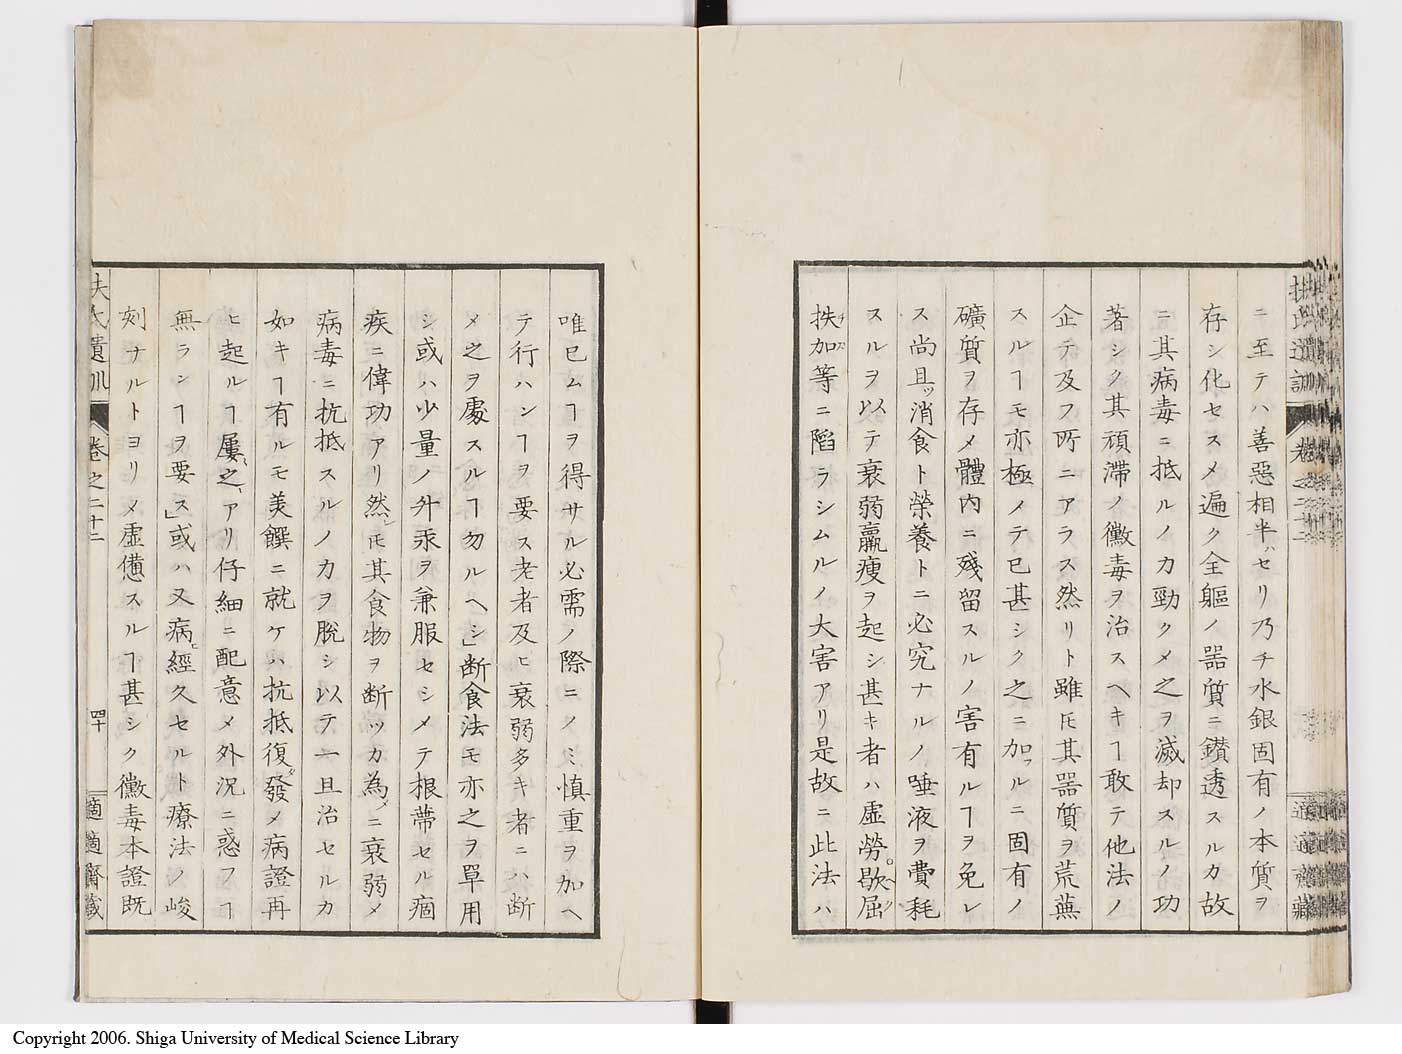 扶氏遺訓 卷之二十二 適適齋藏
ニ至テハ善惡相半ハセリ乃チ水銀固有ノ本質ヲ
存シ化セスメ遍ク全軀ノ器質ニ鑚透スルカ故
ニ其病毒ニ抵ルノ力勁クメ之ヲ滅却スルノ功
著シク其頑滯ノ黴毒ヲ治スヘキヿ敢テ他法ノ
企テ及フ所ニアラス然リト雖𪜈其器質ヲ荒蕪
スルヿモ亦極メテ已甚シク之ニ加ルニ固有ノ
礦質ヲ存メ體內ニ殘留スルノ害有ルヿヲ免レ
ス尚且ツ消食ト榮養トニ必究ナルノ唾液ヲ費耗
スルヲ以テ衰弱羸瘦ヲ起シ甚キ者ハ虛勞。歇屈
扶加等ニ陷ラシムルノ大害アリ是故ニ此法ハ
唯已ムヿヲ得サル必需ノ際ニノミ愼重ヲ加ヘ
テ行ハンヿヲ要ス老者及ヒ衰弱多キ者ニハ断
メ之ヲ處スルヿ勿ルヘシ」断食法モ亦之ヲ單用
シ或ハ少量ノ升汞ヲ兼服セシメテ根蔕セル痼
疾ニ偉功アリ然レ𪜈其食物ヲ断ツカ為メニ衰弱メ
病毒ニ抗抵スルノ力ヲ脫シ以テ一旦治セルカ
如キヿ有ルモ美饌ニ就ケハ抗抵復タ發メ病證再
ヒ起ルヿ屢之アリ仔細ニ配意メ外況ニ惑フヿ
無ランヿヲ要ス」或ハ又病ヒ經久セルト療法ノ峻
刻ナルトヨリメ虛憊スルヿ甚シク黴毒本證既
扶氏遺訓 卷之二十二 四十 適適齋藏
Copyright 2006. Shiga University of Medical Science Library